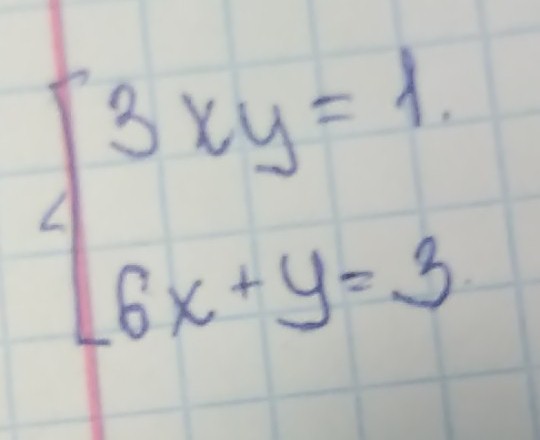 3xy = 1.
6x + y = 3.